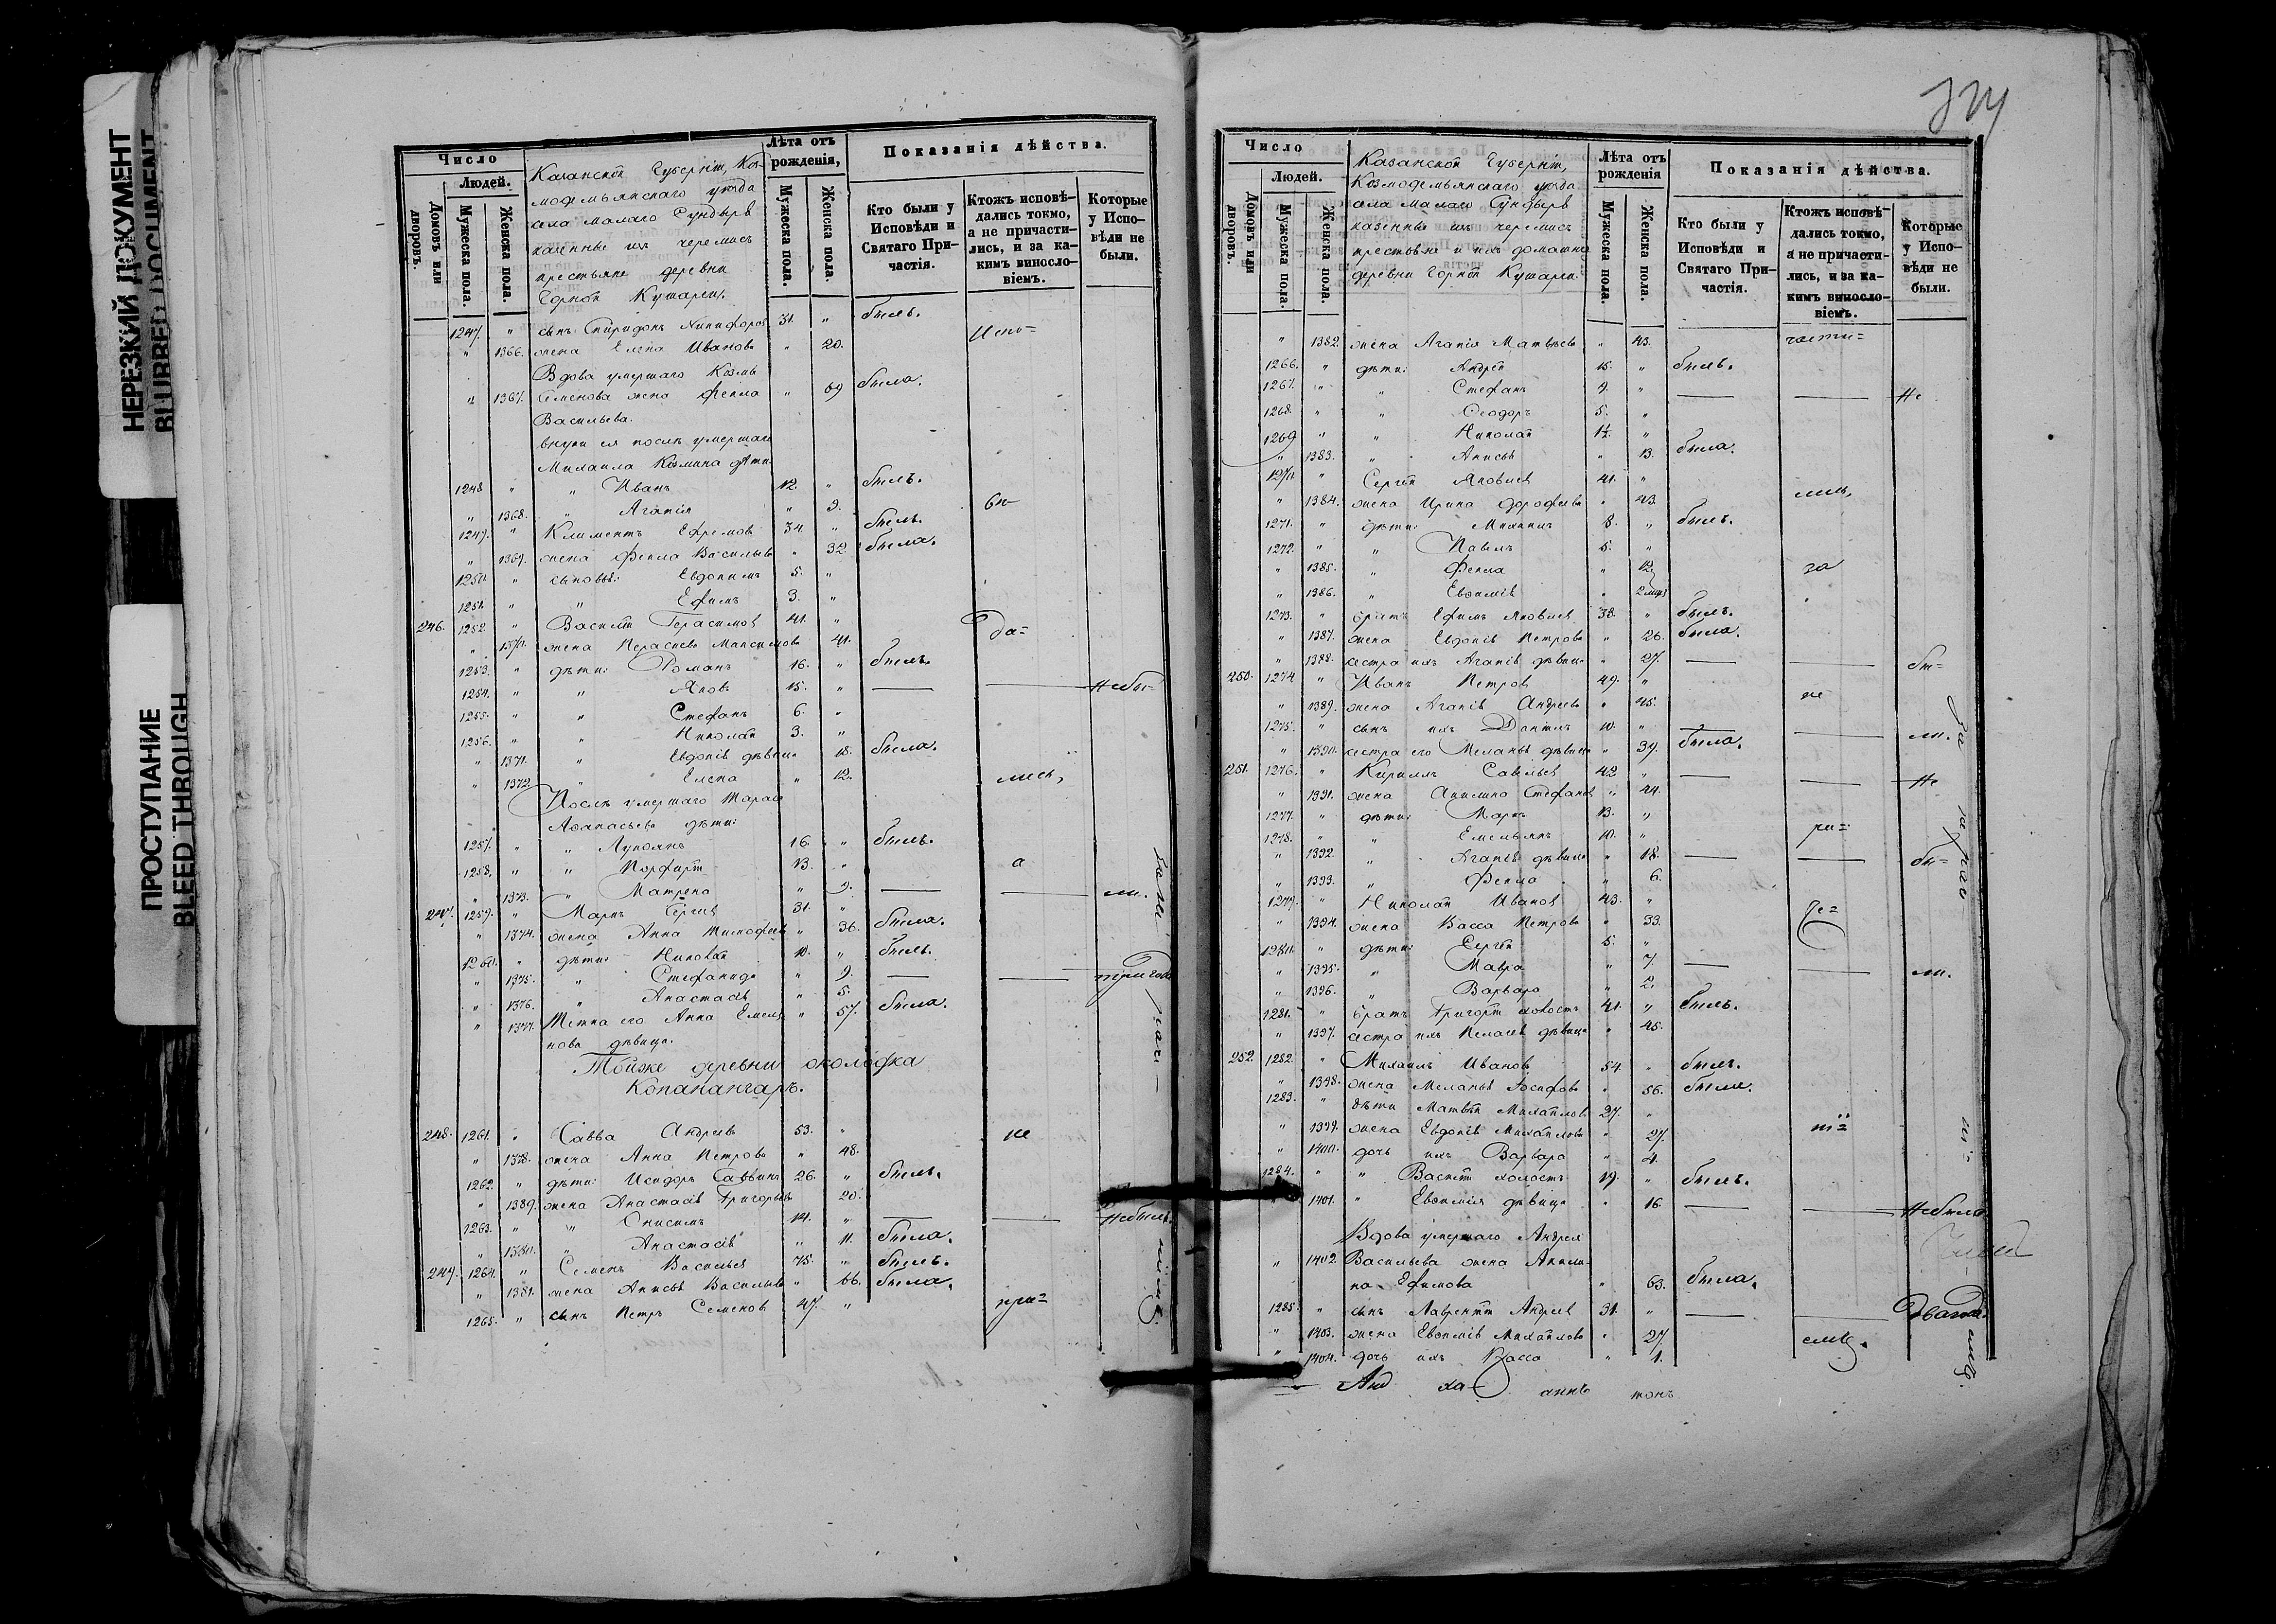 НЕРЕЗКИЙ ДОКУМЕНТ
BLURRED DOCUMENT
ПРОСТУПАНИЕ
BLEED THROUGH
Число
Людей.
Домовъ или дворовъ.
Мужеска пола.
Женска пола.
Казанской Губернiи, Коз-
модемьянскаго уѣзда
села Малаго Сундыря
казенные изъ черемисъ
крестьяне деревни
Горной Кушерги.
Лѣта отъ рожденія,
Мужеска пола.
Женска пола.
Показанія дѣйства.
Кто были у Исповѣди и Святаго Причастія.
Ктожъ исповѣ-
дались токмо,
а не причасти-
лись, и за ка-
кимъ винсло-
віемъ.
Которые
у Испо-
вѣди не
были.
1247. " сынъ Спиридонъ Никифоровъ 31. " былъ.
" 1366. жена Елена Иванова " 20. Испо=
Вдова умершаго Козмы
" 1367. Семенова жена Фекла " 69 была.
Васильева.
внуки ея послѣ умершаго
Михаила Козмина дѣти:
1248 " " Иванъ 12. " былъ.
" 1368. " Агапія " 9.
1249. " Климентъ Ефремовъ 34. " былъ.
" 1369. жена Фекла Васильева " 32. была.
1250. " сыновья: Евдокимъ 5. "
1251. " " Ефимъ 3. "
246. 1252. " Василій Герасимовъ 41. " да=
" 1370. жена Пелагея Максимова 41.
1253. " дѣти: Романъ 16. " былъ.
1254. " " Яковъ 15. " — — Небы=
1255. " " Стефанъ 6. "
1256. " " Николай 3. "
" 1371. " Евдокія дѣвица 18. была.
" 1372. " Елена " 12. лись,
Послѣ умершаго Тараса
Аѳанасьева дѣти:
1257. " " Лукоянъ 16. " былъ.
1258. " " Порфирій 13. " а
" 1373. " Матрена " 9. — — ли.
247. 1259. " Маркъ Сергѣевъ 31. "
" 1374. жена Анна Тимофеева " 36. была.
1260. " дѣти: Николай 10. " былъ.
" 1375. " Стефанида " 9. — — три года
" 1376. " Анастасія " 5.
" 1377. Тетка его Анна Емелья- " 57. была.
нова дѣвица.
Тойже деревни околодка
Копакангаръ.
248. 1261. " Савва Андреевъ 53. " не
" 1378. жена Анна Петрова " 48.
1262. " дѣти: Исидоръ Саввинъ 26. " былъ.
" 1389. жена Анастасія Григорьева 20.
1263. " " Онисимъ 14. " — — Небылъ.
" 1380. " Анастасія " 11. была.
249. 1264. " Семенъ Васильевъ 75. " былъ.
" 1381. жена Анисья Васильева " 66. была.
1265. " сынъ Петръ Семеновъ 47. " при=
Число
Людей.
Домовъ или дворовъ.
Мужеска пола.
Женска пола.
Казанской Губерніи,
Козмодемьянскаго уѣзда
села Малаго Сундыря
казенные изъ черемисъ
крестьяне и ихъ домашніе
деревни Горной Кушерги.
Лѣта отъ рожденія
Мужеска пола.
Женска пола.
Показанія дѣйства.
Кто были у Исповѣди и Святаго Причастія.
Ктожъ исповѣ-
дались токмо,
а не причасти-
лись, и за ка-
кимъ винсло-
віемъ.
Которые
у Испо-
вѣди не
были.
" 1382. жена Агапія Матвѣева " 43. части=
1266. " дѣти: Андрей 15. " былъ.
1267. " " Стефанъ 9. " — — Не
1268. " " Ѳеодоръ 5. "
1269 " " Николай 1½. "
" 1383. " Анисья " 13. была.
1270. " Сергей Яковлевъ 41. "
" 1384. жена Ирина Дорофеева " 43. лись,
1271. " дѣти: Михаилъ 8. " былъ.
1272. " " Павелъ 5. "
" 1385. " Фекла " 12 за
" 1386. " Евѳимія "
1273. " братъ Ефимъ Яковлевъ 38. " былъ.
" 1387. жена Евдокія Петрова " 26. была.
" 1388. сестра ихъ Агапія дѣвица " 27. — — бы=
250. 1274 " Иванъ Петровъ 49. "
" 1389. жена Агапія Андреева " 45. не
1275. " сынъ ихъ Даніилъ 10. " — — ли.
" 1390. сестра его Меланья дѣвица " 39. была.
251. 1276. " Кириллъ Савельевъ 42 " — — Не
" 1391. жена Акилина Стефанова " 44.
1277. " дѣти: Маркъ 13. "
1278. " " Емельянъ 10. " ра=
" 1392. " Агапія дѣвица " 18. — — бы=
" 1393. " Фекла " 6.
1279. " Николай Ивановъ 43. "
" 1394. жена Васса Петрова " 33.
1280. " дѣти: Сергей 5. "
" 1395. " Мавра " 7. — — ли.
" 1396. " Варвара " 2.
1281. " братъ Григорій холостъ 41. " былъ.
" 1397. сестра ихъ Пелагея дѣвица " 45.
252. 1282. " Михаилъ Ивановъ 54. " былъ.
" 1398. жена Меланья Іосифова " 56. была.
1283. " дѣти Матвѣй Михайловъ 27. "
" 1399. жена Евдокія Михайлова " 27.
" 1400. дочь ихъ Варвара " 4.
1284. " " Василій холостъ 19. " былъ.
" 1401. " Евѳимія дѣвица " 16. — — Небыла
Вдова умершаго Андрея
" 1402. Васильева жена Акили-
на Ефимова " 63. была.
1285. " сынъ Лаврентій Андреевъ 31. " — —
" 1403. жена Евѳимія Михайлова " 27.
" 1404. дочь ихъ Васса " 1.